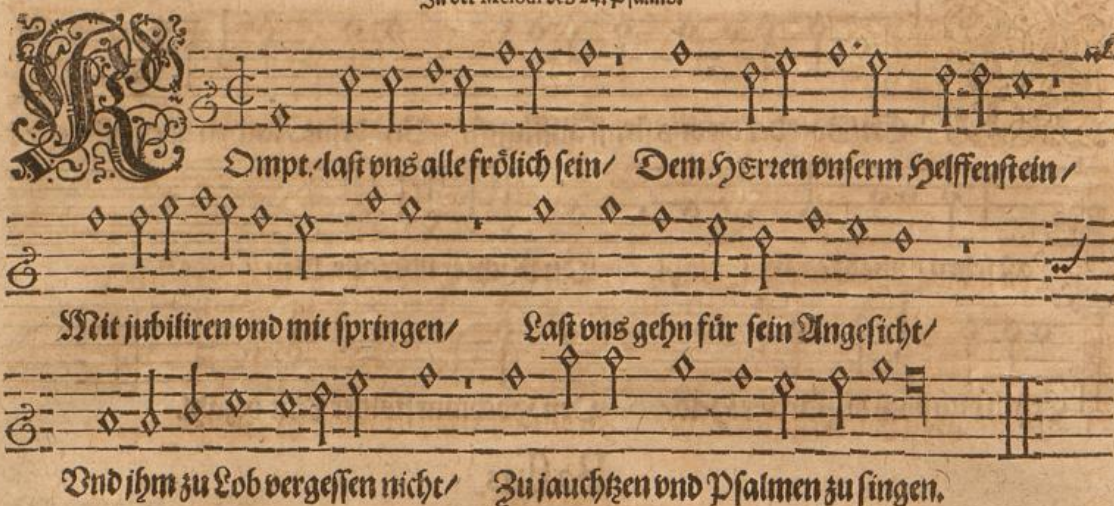 In der Melodi des 24. Psalms.
KOmpt/ last vns alle frölich sein/ Dem HErren vnserm Helffenstein/
Mit jubiliren vnd mit springen/ Last vns gehn für sein Angesicht/
Vnd jhm zu Lob vergessen nicht/ Zu jauchtzen vnd Psalmen zu singen.